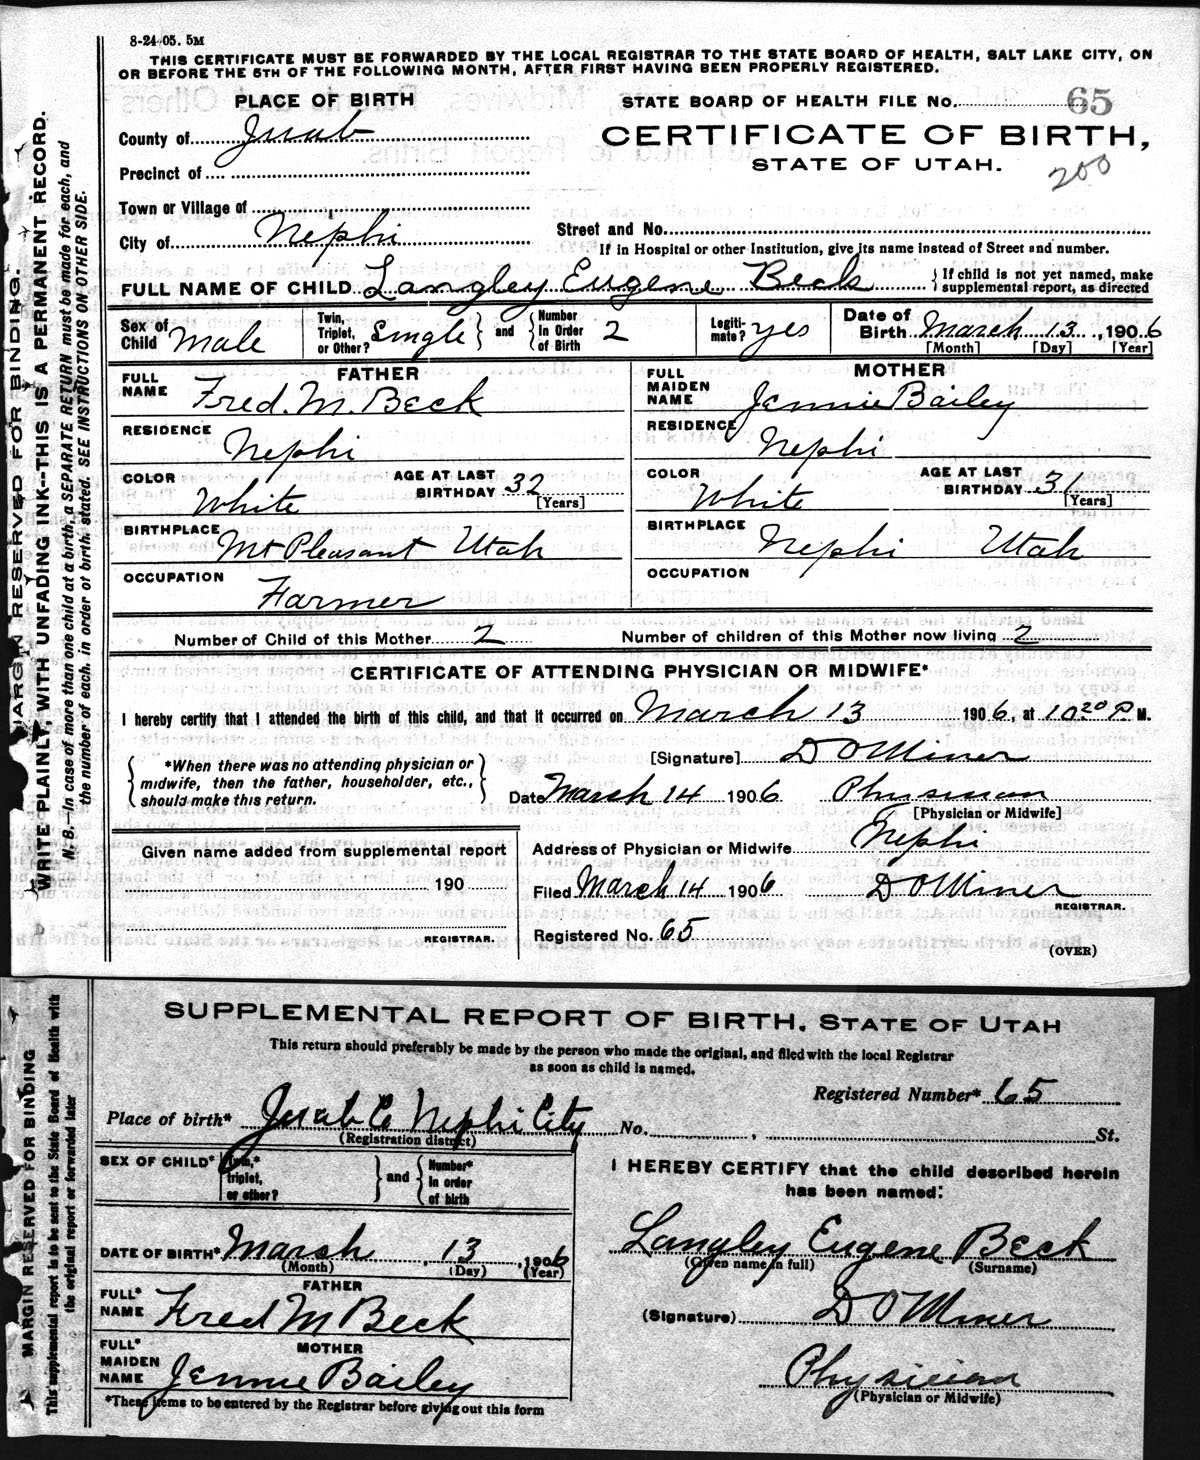 8-24-05. 5M
THIS CERTIFICATE MUST BE FORWARDED BY THE LOCAL REGISTRAR TO THE STATE BOARD OF HEALTH, SALT LAKE CITY, ON
OR BEFORE THE 5TH OF THE FOLLOWING MONTH, AFTER FIRST HAVING BEEN PROPERLY REGISTERED.
PLACE OF BIRTH
STATE BOARD OF HEALTH FILE No. 65
County of Juab
CERTIFICATE OF BIRTH,
STATE OF UTAH.
200
Precinct of
Town or Village of
City of Nephi
Street and No.
If in Hospital or other Institution, give its name instead of Street and number.
FULL NAME OF CHILD Langley Eugene Beck } If child is not yet named, make supplemental report, as directed
Sex of Child Male
Twin, Triplet, or Other? Single } and { Number in Order of Birth 2
Legitimate? yes
Date of Birth March 13, 1906
[Month] [Day] [Year]
FATHER
FULL NAME Fred. M. Beck
RESIDENCE Nephi
COLOR White
AGE AT LAST BIRTHDAY 32 [Years]
BIRTHPLACE Mt Pleasant Utah
OCCUPATION Farmer
MOTHER
FULL MAIDEN NAME Jennie Bailey
RESIDENCE Nephi
COLOR White
AGE AT LAST BIRTHDAY 31 [Years]
BIRTHPLACE Nephi Utah
OCCUPATION
Number of Child of this Mother 2 Number of children of this Mother now living 2
CERTIFICATE OF ATTENDING PHYSICIAN OR MIDWIFE*
I hereby certify that I attended the birth of this child, and that it occurred on March 13 1906, at 10 20 P M.
{ *When there was no attending physician or midwife, then the father, householder, etc., should make this return. }
[Signature] D O Miner
Date March 14 1906 Physician
[Physician or Midwife]
Given name added from supplemental report
190
REGISTRAR.
Address of Physician or Midwife Nephi
Filed March 14 1906 D O Miner
REGISTRAR.
Registered No. 65
(OVER)
MARGIN RESERVED FOR BINDING.
WRITE PLAINLY, WITH UNFADING INK--THIS IS A PERMANENT RECORD.
N. B.--In case of more than one child at a birth, a SEPARATE RETURN must be made for each, and
the number of each, in order of birth, stated. SEE INSTRUCTIONS ON OTHER SIDE.
SUPPLEMENTAL REPORT OF BIRTH. STATE OF UTAH
This return should preferably be made by the person who made the original, and filed with the local Registrar
as soon as child is named.
Registered Number* 65
Place of birth* Juab Co Nephi City No. , St.
(Registration district)
SEX OF CHILD* Twin,* triplet, or other? } and { Number* in order of birth
DATE OF BIRTH* March, 13, 1906
(Month) (Day) (Year)
FATHER
FULL* NAME Fred M Beck
MOTHER
FULL* MAIDEN NAME Jennie Bailey
*These items to be entered by the Registrar before giving out this form
I HEREBY CERTIFY that the child described herein
has been named:
Langley Eugene Beck
(Given name in full) (Surname)
(Signature) D O Miner
Physician
(Physician or Midwife)
MARGIN RESERVED FOR BINDING
This supplemental report is to be sent to the State Board of Health with
the original report or forwarded later